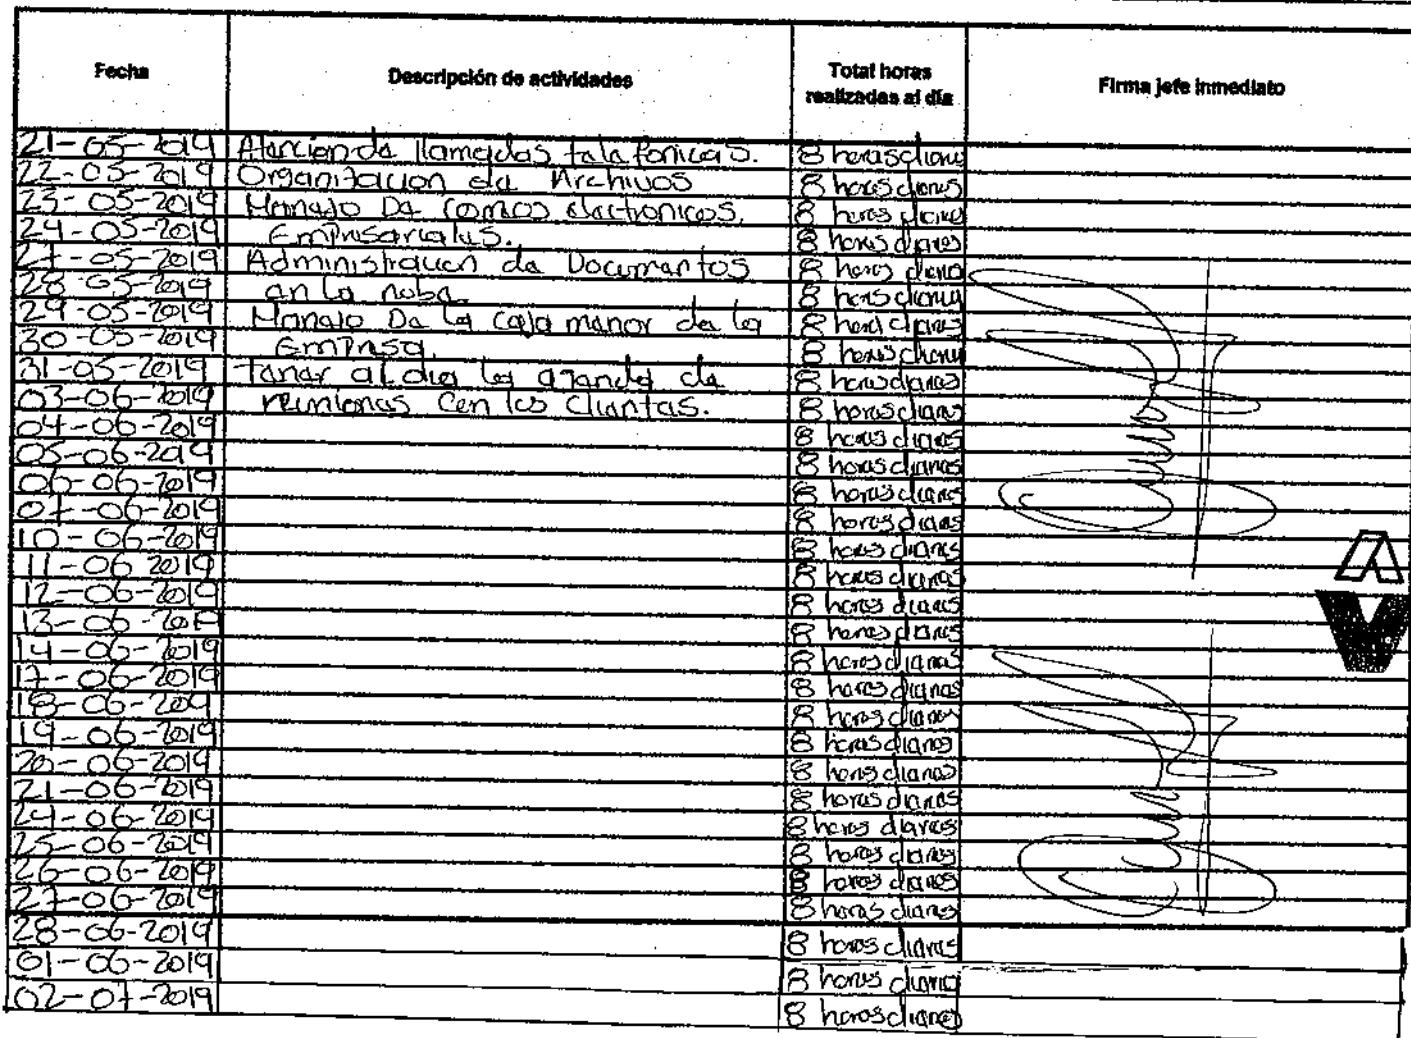 Fecha Descripción de actividades Total horas realizadas al día Firma jefe inmediato
21-05-2019 Atencion de llamadas talafonicas. 8 horas diarias
22-05-2019 Organizacion de Archivos 8 horas diarias
23-05-2019 Manajo Da correos electronicos. 8 horas diarias
24-05-2019 Empresariales. 8 horas diarias
27-05-2019 Administracion da Documantos 8 horas diarias
28-05-2019 en La nube. 8 horas diarias
29-05-2019 Manajo Da la caja manor de la 8 horas diarias
30-05-2019 Empresa. 8 horas diarias
31-05-2019 Tanar al dia la agenda de 8 horas diarias
03-06-2019 reuniones Con los Cliantas. 8 horas diarias
04-06-2019 8 horas diarias
05-06-2019 8 horas diarias
06-06-2019 8 horas diarias
07-06-2019 8 horas diarias
10-06-2019 8 horas diarias
11-06 2019 8 horas diarias
12-06-2019 8 horas diarias
13-06-2019 8 horas diarias
14-06-2019 8 horas diarias
17-06-2019 8 horas diarias
18-06-2019 8 horas diarias
19-06-2019 8 horas diarias
20-06-2019 8 horas diarias
21-06-2019 8 horas diarias
24-06-2019 8 horas diarias
25-06-2019 8 horas diarias
26-06-2019 8 horas diarias
27-06-2019 8 horas diarias
28-06-2019 8 horas diarias
01-06-2019 8 horas diarias
02-07-2019 8 horas diarias